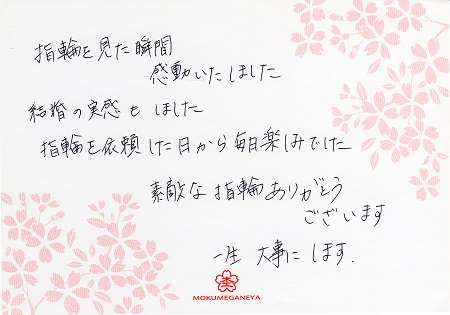 指輪を見た瞬間
感動いたしました
結婚の実感も しました
指輪を依頼した日から毎日楽しみでした
素敵な指輪ありがとう
ございます
一生 大事にします.
MOKUMEGANEYA